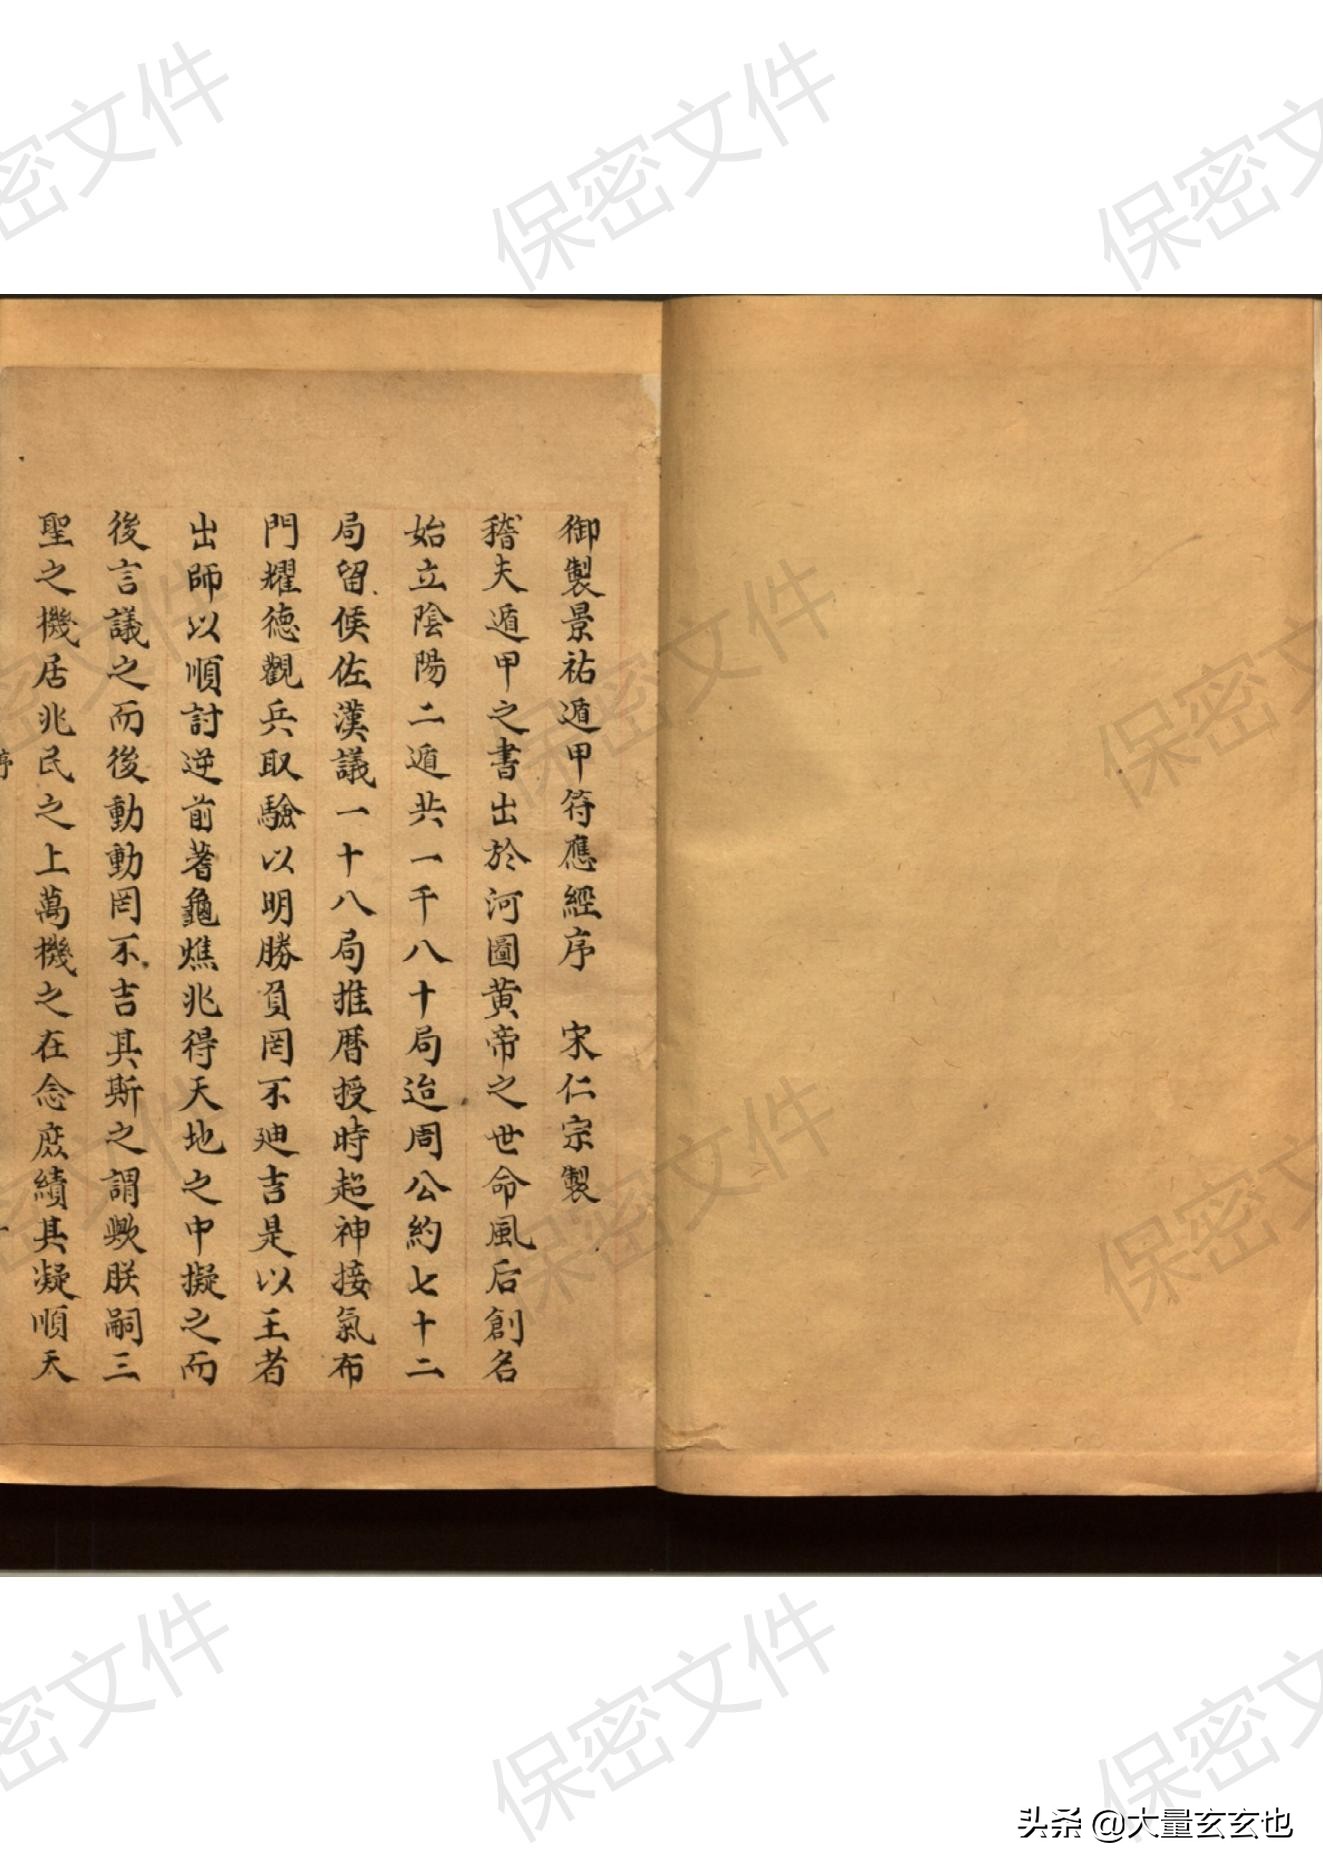 御製景祐遁甲符應經序　宋仁宗製
稽夫遁甲之書出於河圖黃帝之世命風后創名
始立陰陽二遁共一千八十局迨周公約七十二
局留侯佐漢議一十八局推曆授時超神接氣布
門耀德觀兵取驗以明勝負罔不迪吉是以王者
出師以順討逆前著龜燋兆得天地之中擬之而
後言議之而後動動罔不吉其斯之謂歟朕嗣三
聖之機居兆民之上萬機之在念庶績其凝順天
序
一
保密文件
保密文件
保密文件
保密文件
保密文件
保密文件
保密文件
保密文件
保密文件
保密文件
保密文件
保密文件
头条 @大量玄玄也